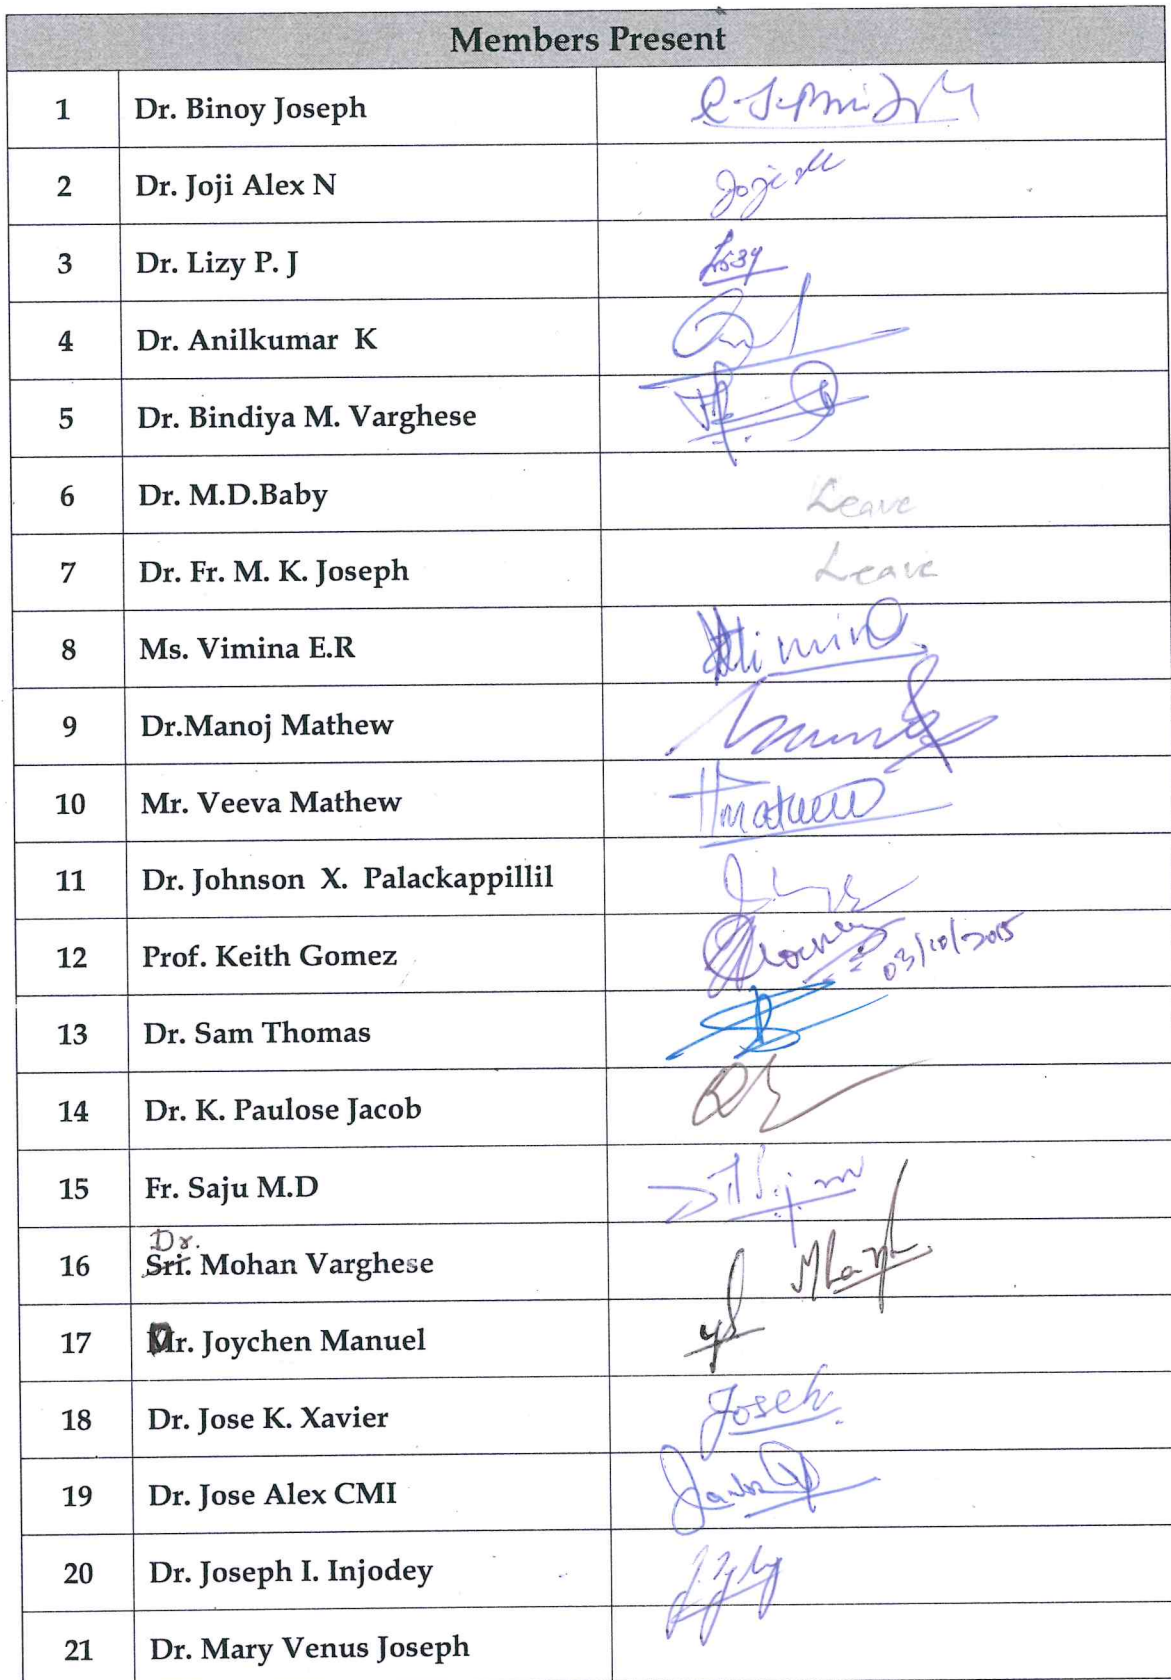 Members Present
1 Dr. Binoy Joseph
2 Dr. Joji Alex N
3 Dr. Lizy P. J
4 Dr. Anilkumar K
5 Dr. Bindiya M. Varghese
6 Dr. M.D.Baby Leave
7 Dr. Fr. M. K. Joseph Leave
8 Ms. Vimina E.R
9 Dr.Manoj Mathew
10 Mr. Veeva Mathew
11 Dr. Johnson X. Palackappillil
12 Prof. Keith Gomez 03/10/2015
13 Dr. Sam Thomas
14 Dr. K. Paulose Jacob
15 Fr. Saju M.D
Dr.
16 Sri. Mohan Varghese
17 Dr. Joychen Manuel
18 Dr. Jose K. Xavier
19 Dr. Jose Alex CMI
20 Dr. Joseph I. Injodey
21 Dr. Mary Venus Joseph